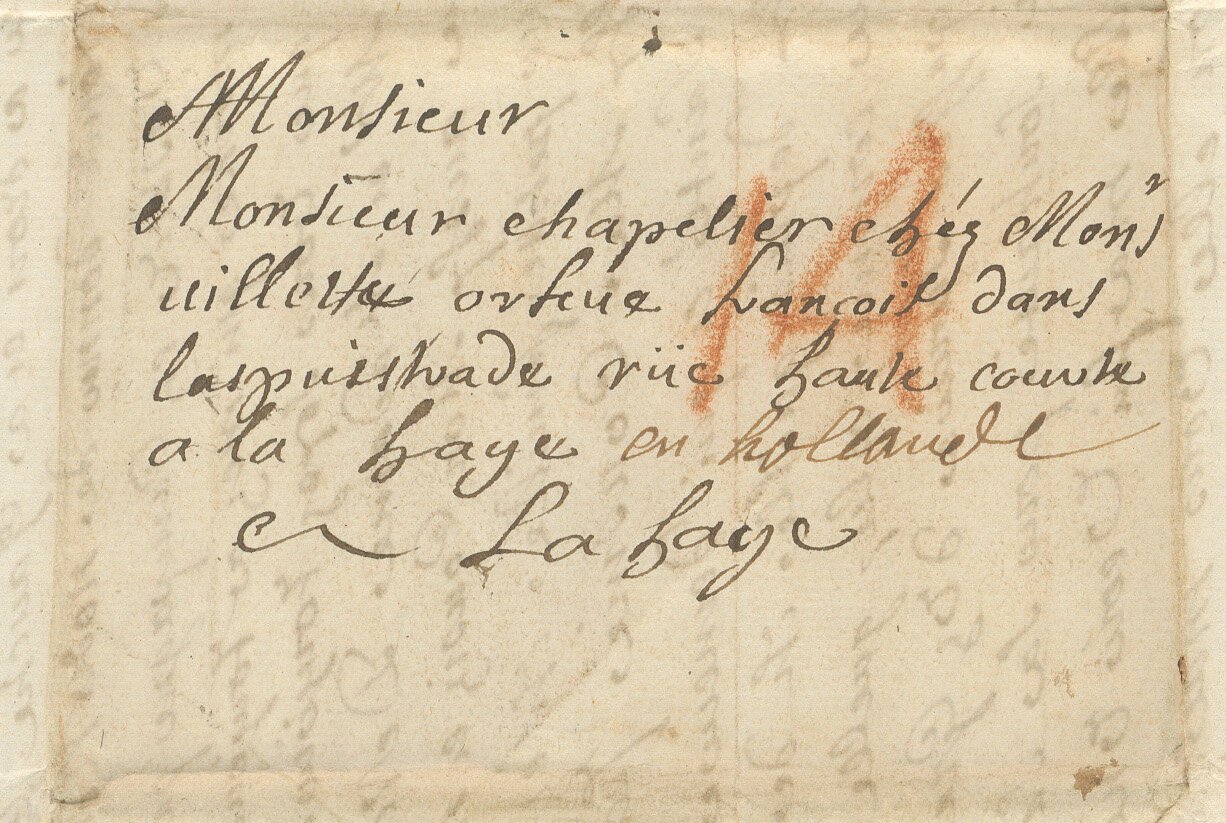 Monsieur
Monsieur chapelier chéz Monsr
uillette orfeue francois dans
laspuisstrade riie haute courte
a la haye en hollande
La haye
14